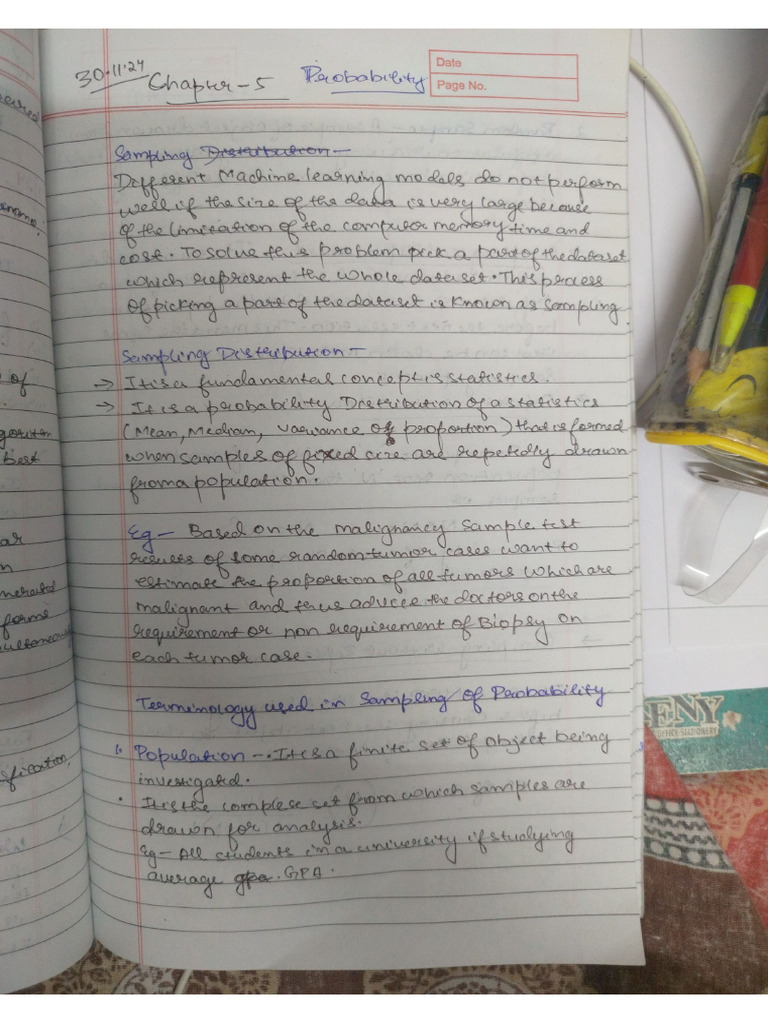 30.11.24
Chapter - 5 Probability
Date
Page No.
Sampling Distribution -
Different Machine learning models do not perform
well if the size of the data is very large because
of the limitation of the computer memory time and
cost. To solve this problem pick a part of the dataset
which represent the whole dataset. This process
of picking a part of the dataset is known as sampling
Sampling Distribution -
→ It is a fundamental concept is statistics.
→ It is a probability Distribution of a statistics
(Mean, Median, variance of proportion) that is formed
when samples of fixed size are repetedly drawn
from a population.
Eg - Based on the malignancy sample test
results of some random tumor cases want to
estimate the proportion of all tumors which are
malignant and thus advice the doctors on the
requirement or non requirement of Biopsy on
each tumor case.
Terminology used in Sampling of Probability
1. Population - It is a finite set of Object being
investigated.
• It is the complese set from which samples are
drawn for analysis.
Eg - All students in a university if studying
average gpa. GPA.
of
best
ar
forms
ENY
OFFICE STATIONERY